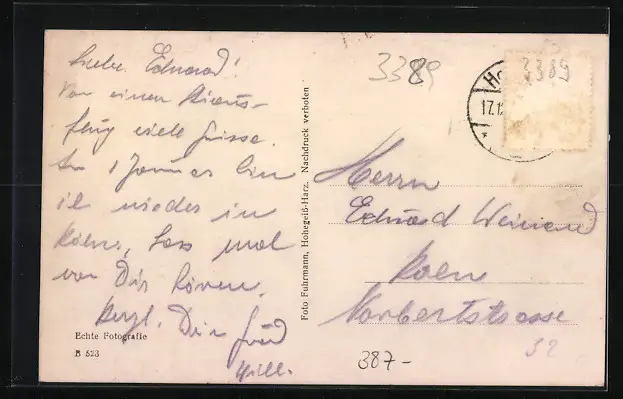 Lieber Eduard!
Von einem Skiaus-
flug viele Grüsse.
Am 1 Januar bin
ich wieder in
Köln, lass mal
von Dir hören.
Herzl. Dein Freund
Willi.
Echte Fotografie
B 523
Foto Fuhrmann, Hohegeiß-Harz. Nachdruck verboten
3389
3389
Ho
17.12
Herrn
Eduard
Koeln
Norbertstrasse
32
387-